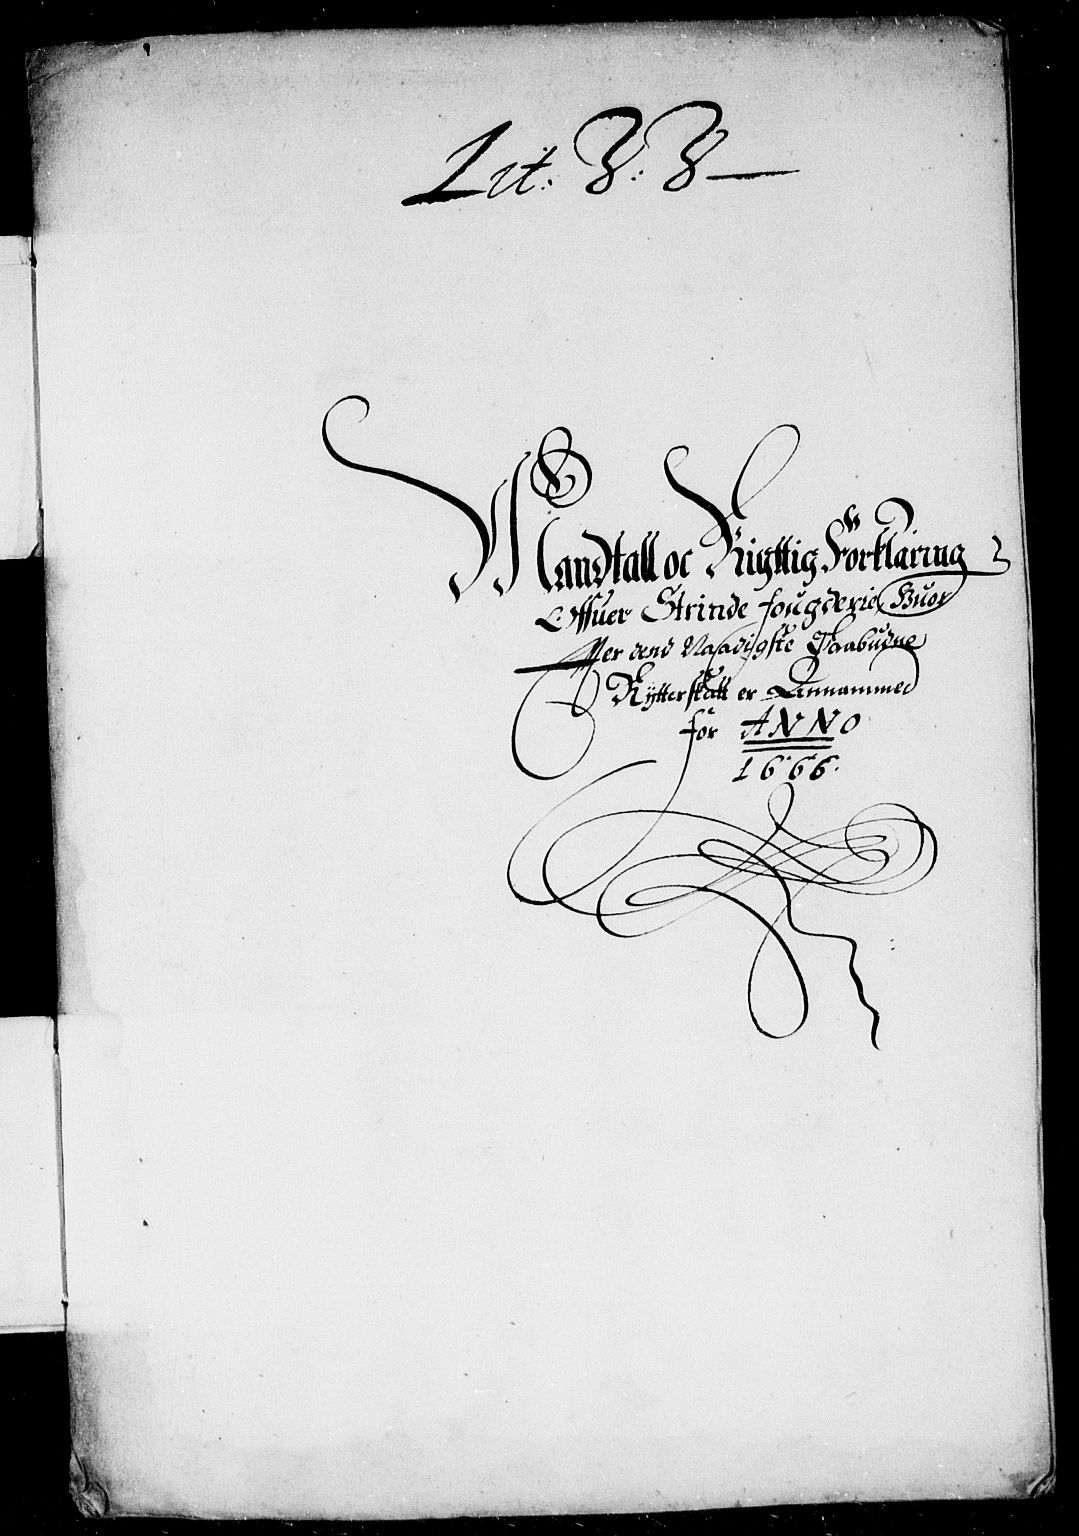 Lit: B: B
Mandtall oc Rigttig Förklaring
Offuer Strinde fougderie Huor
effter dend Naadigste Paabudne
Rÿtterskatt er Annammed
för ANNO
1666.